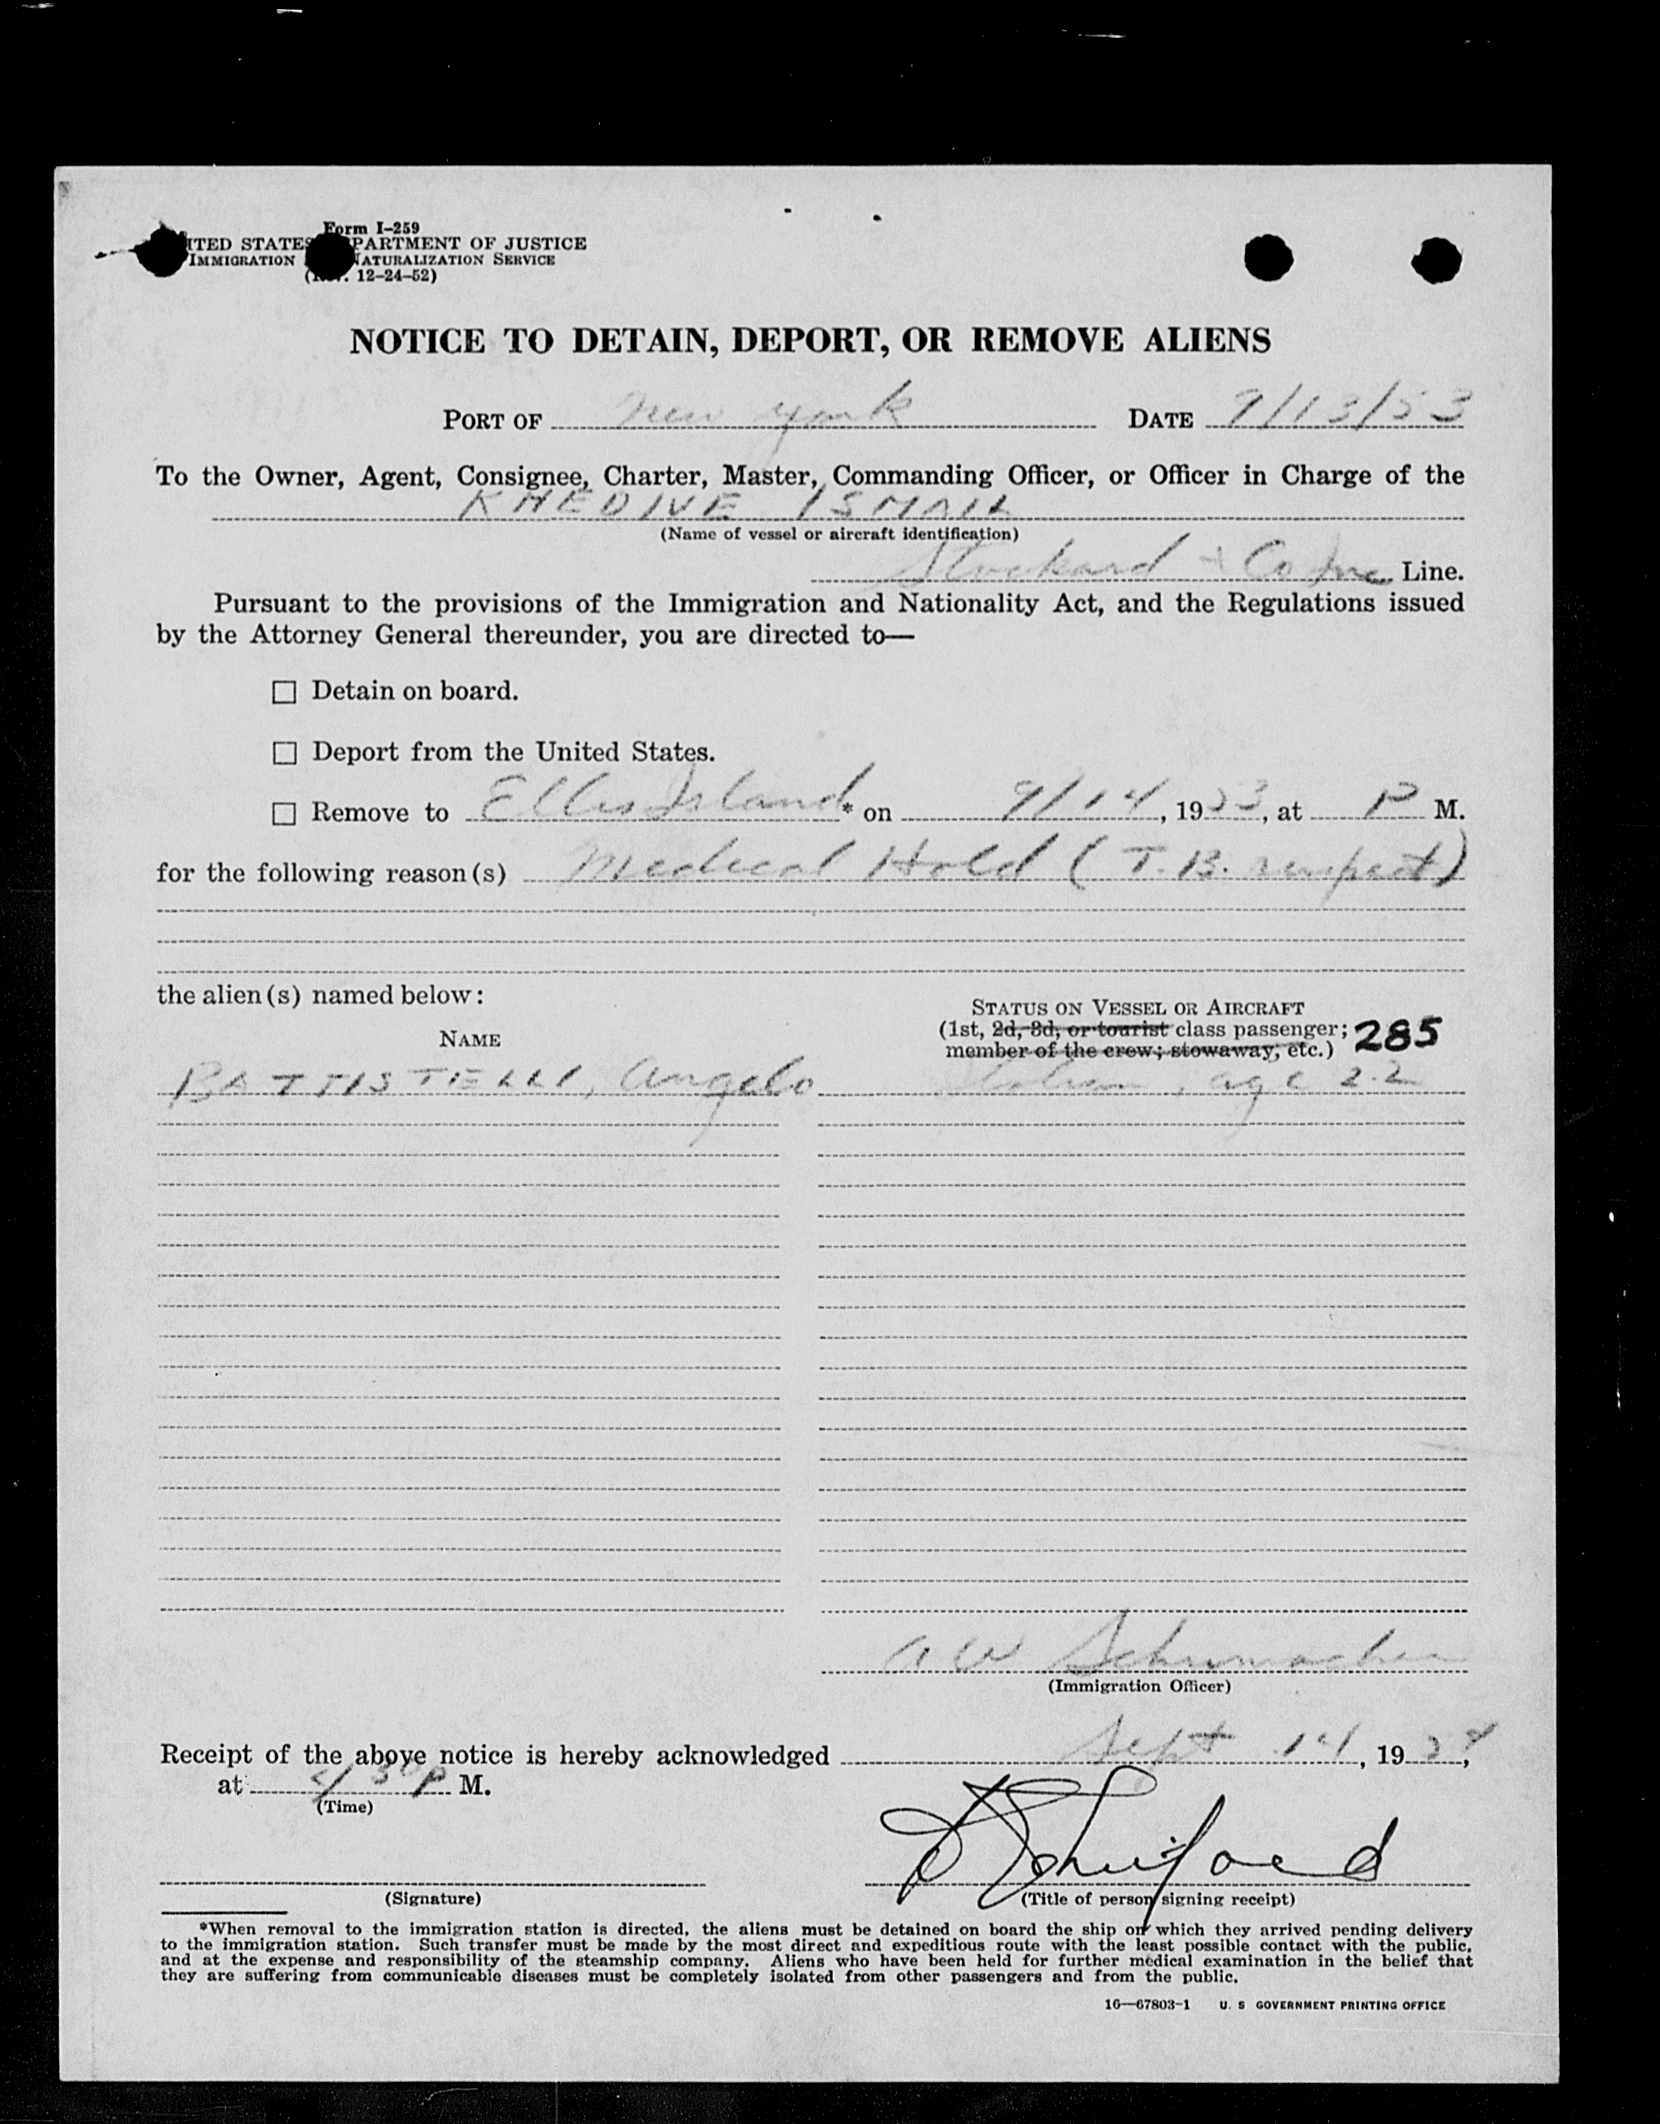 Form I-259
ITED STATES PARTMENT OF JUSTICE
IMMIGRATION NATURALIZATION SERVICE
12-24-52)
NOTICE TO DETAIN, DEPORT, OR REMOVE ALIENS
PORT OF New York DATE 9/13/53
To the Owner, Agent, Consignee, Charter, Master, Commanding Officer, or Officer in Charge of the
KHEDIVE ISMAIL
(Name of vessel or aircraft identification)
Stockard & Co Inc Line.
Pursuant to the provisions of the Immigration and Nationality Act, and the Regulations issued
by the Attorney General thereunder, you are directed to—
☐ Detain on board.
☐ Deport from the United States.
☐ Remove to Ellis Island * on 9/14, 1953, at P M.
for the following reason(s) Medical Hold (T.B. suspect)
the alien(s) named below:
STATUS ON VESSEL OR AIRCRAFT
NAME (1st, 2d, 3d, or tourist class passenger;
member of the crew; stowaway, etc.) 285
BATTISTELLI, Angelo Italian, age 22
A W Schumacher
(Immigration Officer)
Receipt of the above notice is hereby acknowledged Sept 14, 19
at 430 P M.
(Time)
(Signature) (Title of person signing receipt)
*When removal to the immigration station is directed, the aliens must be detained on board the ship on which they arrived pending delivery
to the immigration station. Such transfer must be made by the most direct and expeditious route with the least possible contact with the public,
and at the expense and responsibility of the steamship company. Aliens who have been held for further medical examination in the belief that
they are suffering from communicable diseases must be completely isolated from other passengers and from the public.
16—67803-1 U. S GOVERNMENT PRINTING OFFICE